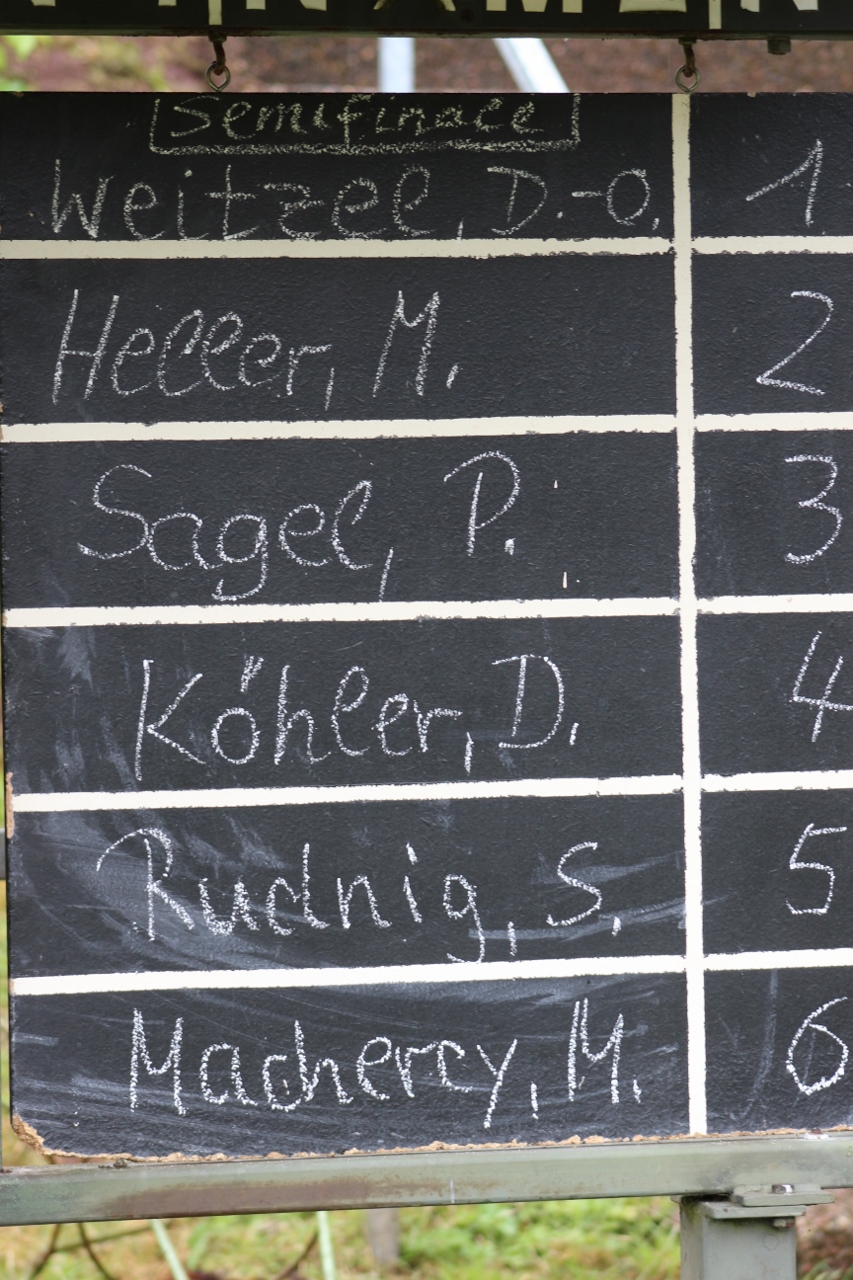 Semifinale
Weitzel, D.-O. 1
Heller, M. 2
Sagel, P. 3
Köhler, D. 4
Rudnig, S. 5
Machercy, M. 6